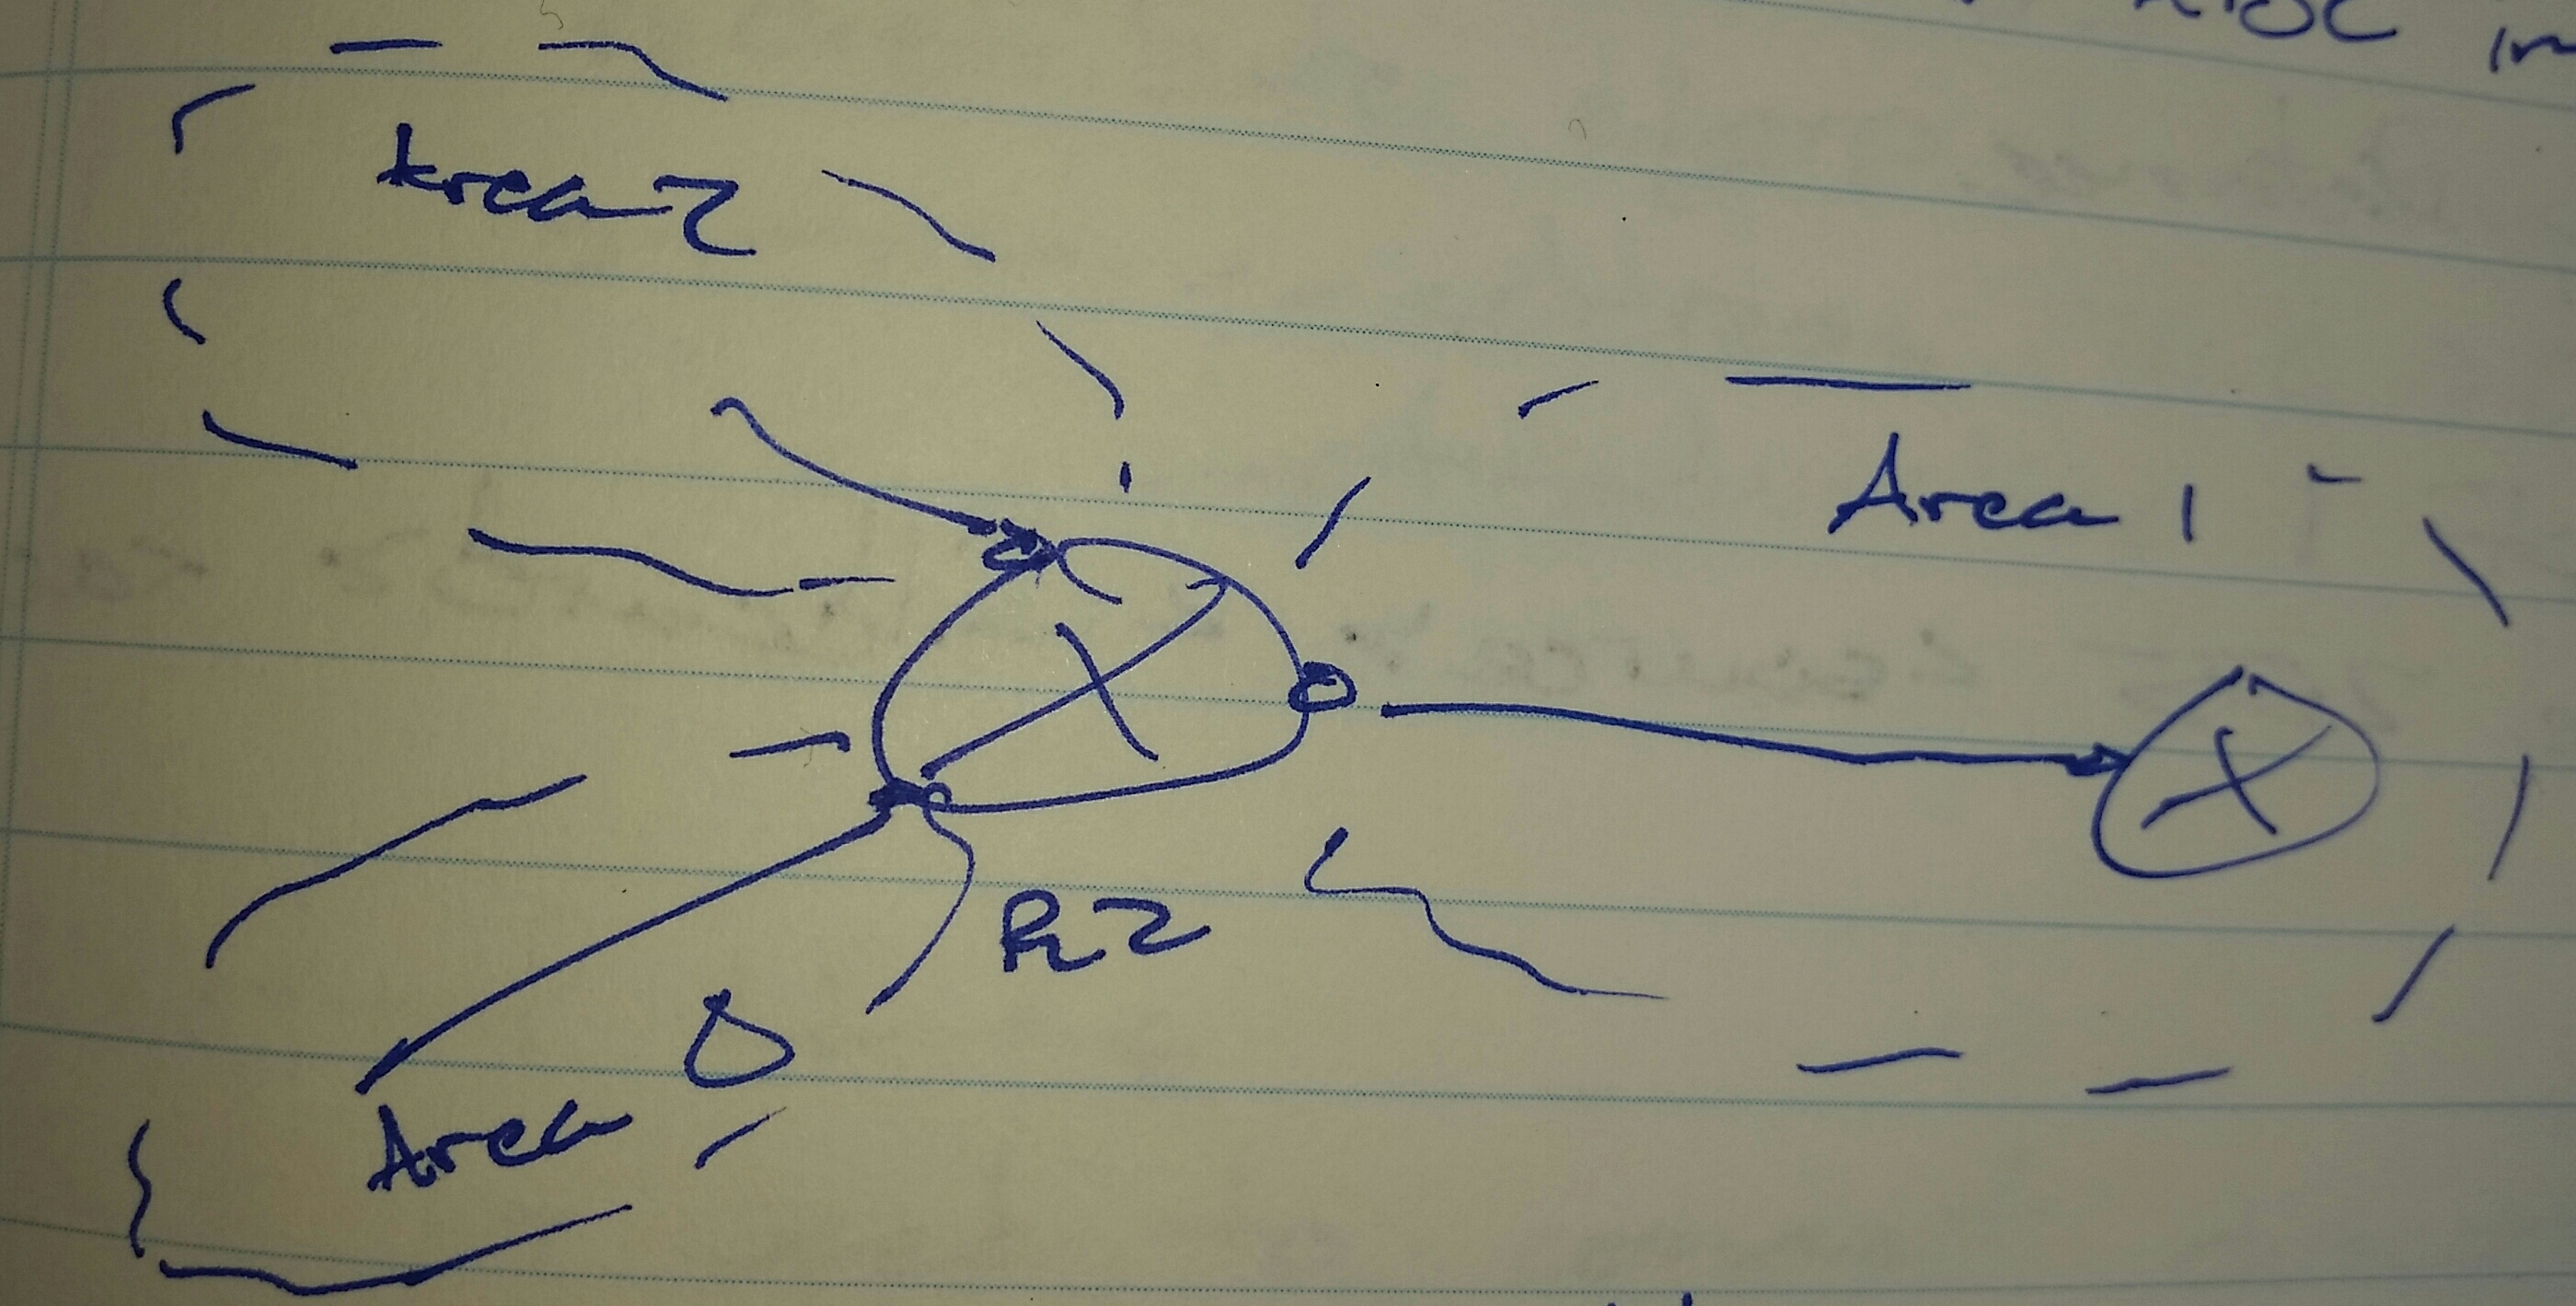 Area 2
Area 1
R2
Area 0